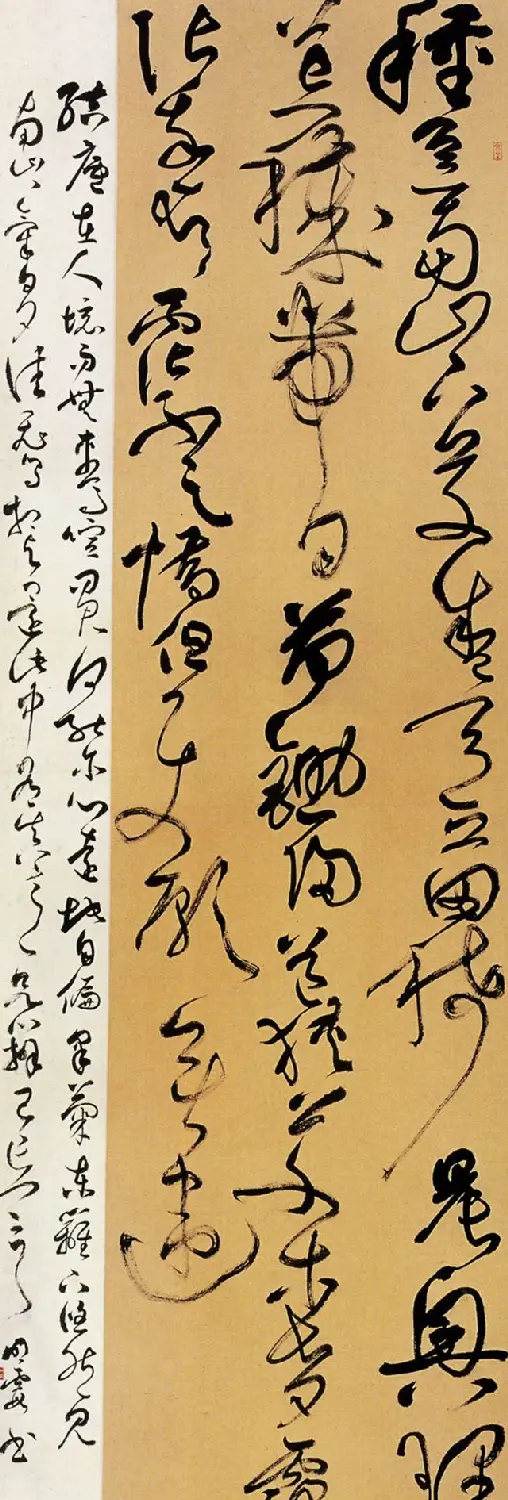 種豆南山下草盛豆苗稀晨興理
荒穢帶月荷鋤歸道狹草木長夕露
沾我衣衣霑不足惜但使願無違
結廬在人境而無車馬喧問君何能爾心遠地自偏采菊東籬下悠然見
南山山氣日夕佳飛鳥相與還此中有真意欲辨已忘言 书